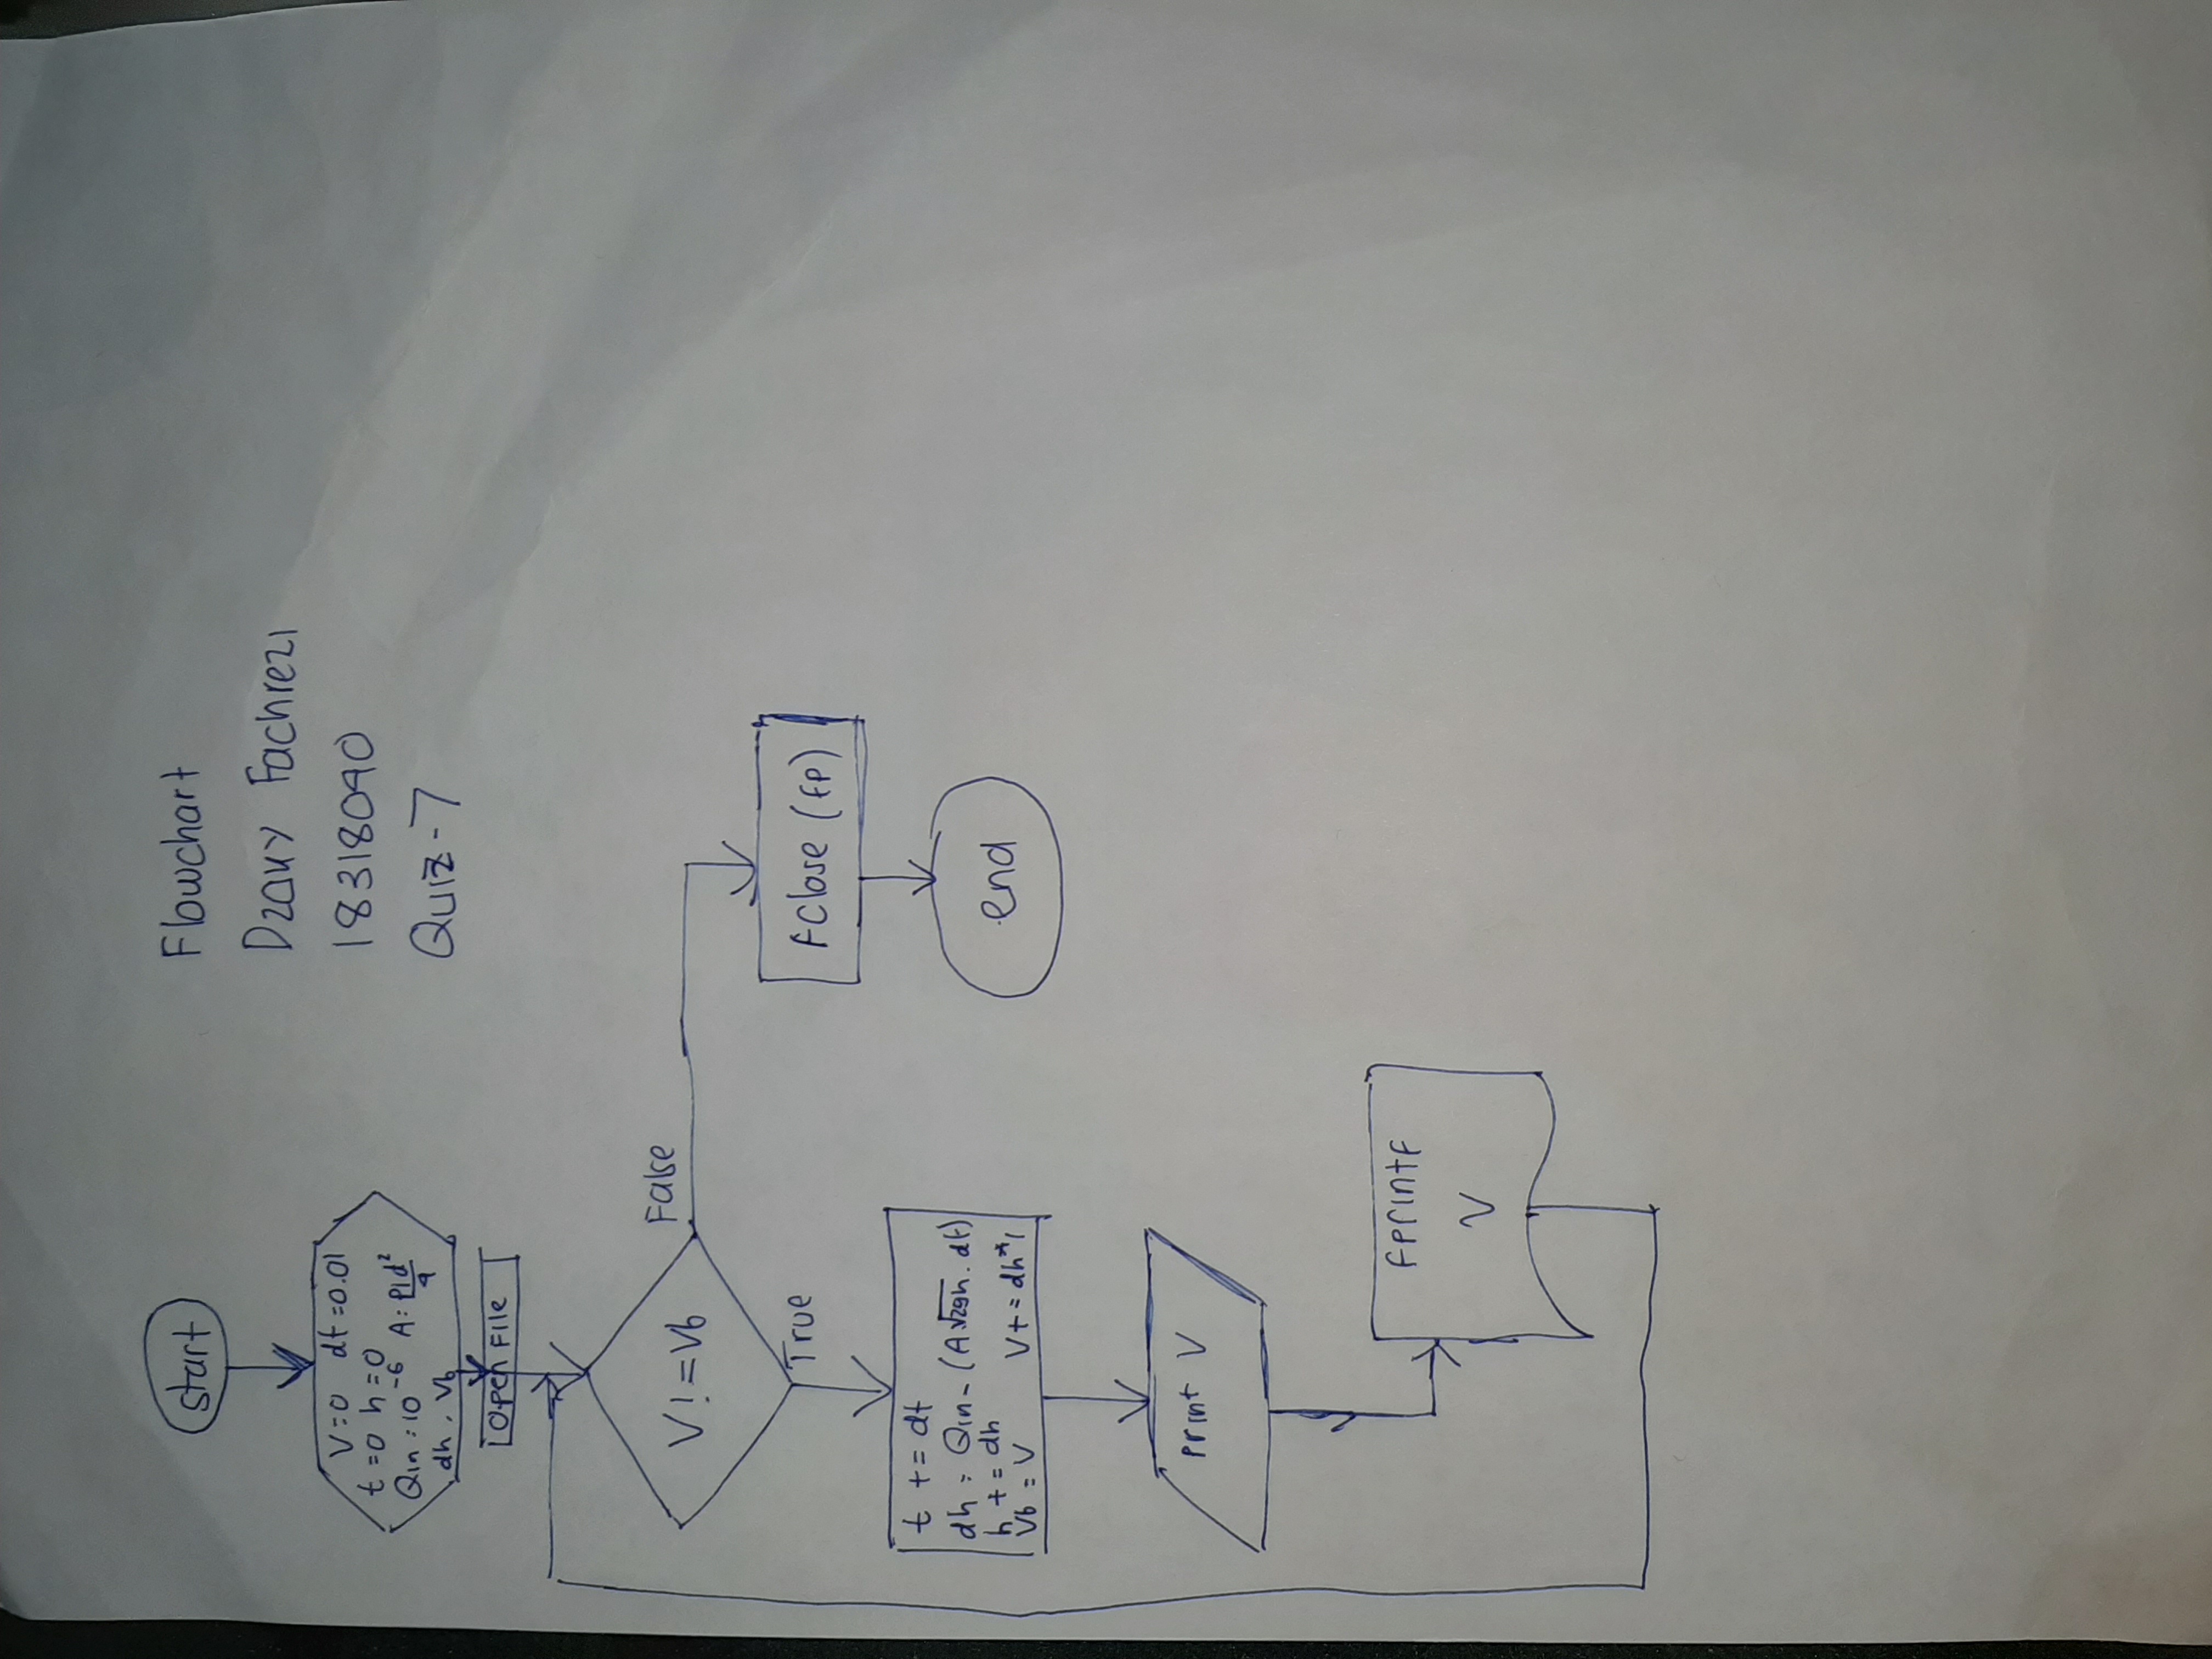 Flowchart
Dzaky Fachrezi
18318090
Quiz-7
start
V=0 dt=0.01
t=0 h=0
Qin=10^-6 A=PId²/4
dh, Vb
Open File
V!=Vb
False
True
fclose (fp)
end
t += dt
dh = Qin - (A√2gh . dt)
h += dh
Vb = V V+=dh*1
print V
fprintf
V